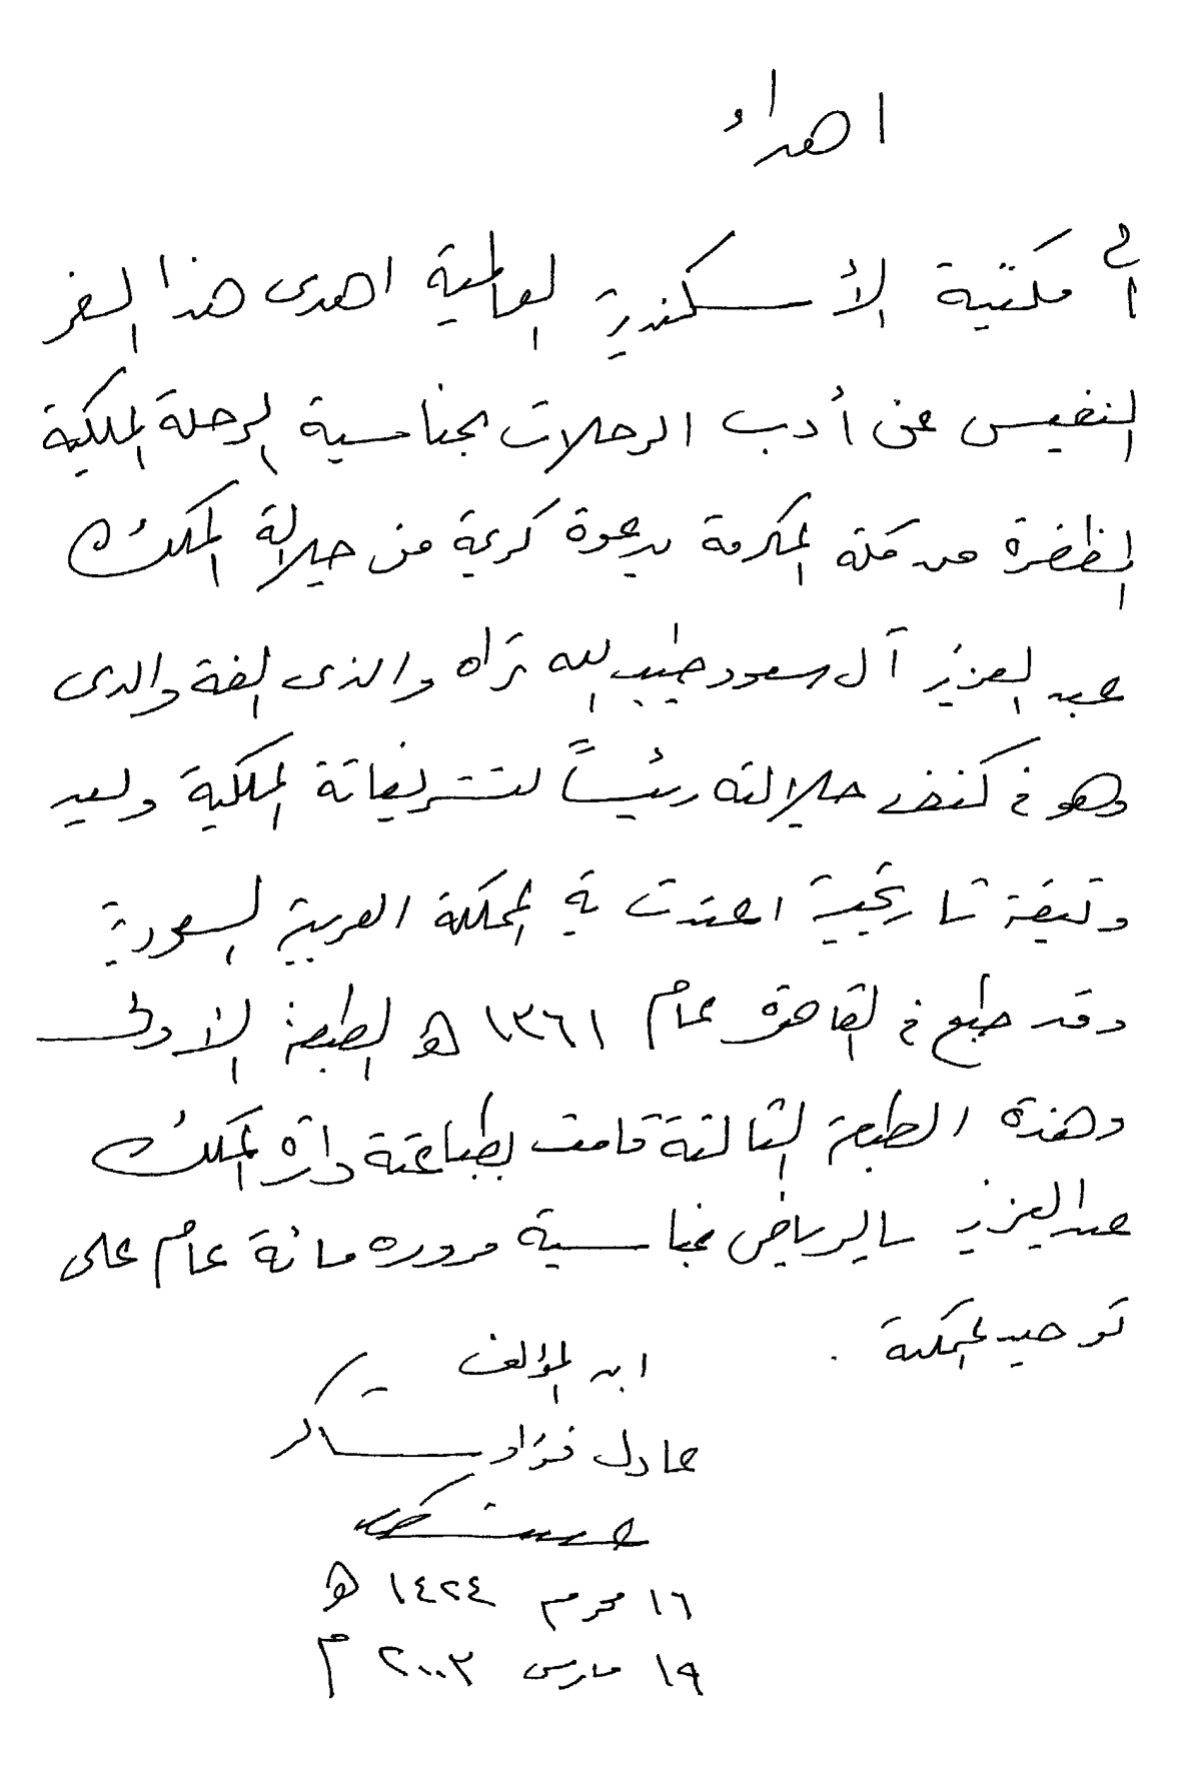 اهداء
الى مكتبة الأسكندرية العالمية اهدى هذا السفر
النفيس عن أدب الرحلات بمناسبة الرحلة الملكية
المظفرة من مكة المكرمة بدعوة كريمة من جلالة الملك
عبد العزيز آل سعود طيب الله ثراه والذى الفة والدى
وهو فى كنف جلالته رئيساً لتشريفاتة الملكية ويعد
وثيقة تاريخية اعتدت بة المملكة العربية السعودية
وقد طبع فى القاهرة عام ١٣٦١ هـ الطبعة الأولى
وهذة الطبعة الثالثة قامت بطباعتة دارة الملك
عبد العزيز بالرياض بمناسبة مرور مائة عام على
توحيد المملكة .
ابن المؤلف
عادل فؤاد شاكر
١٦ محرم ١٤٢٤ هـ
١٩ مارس ٢٠٠٣ م